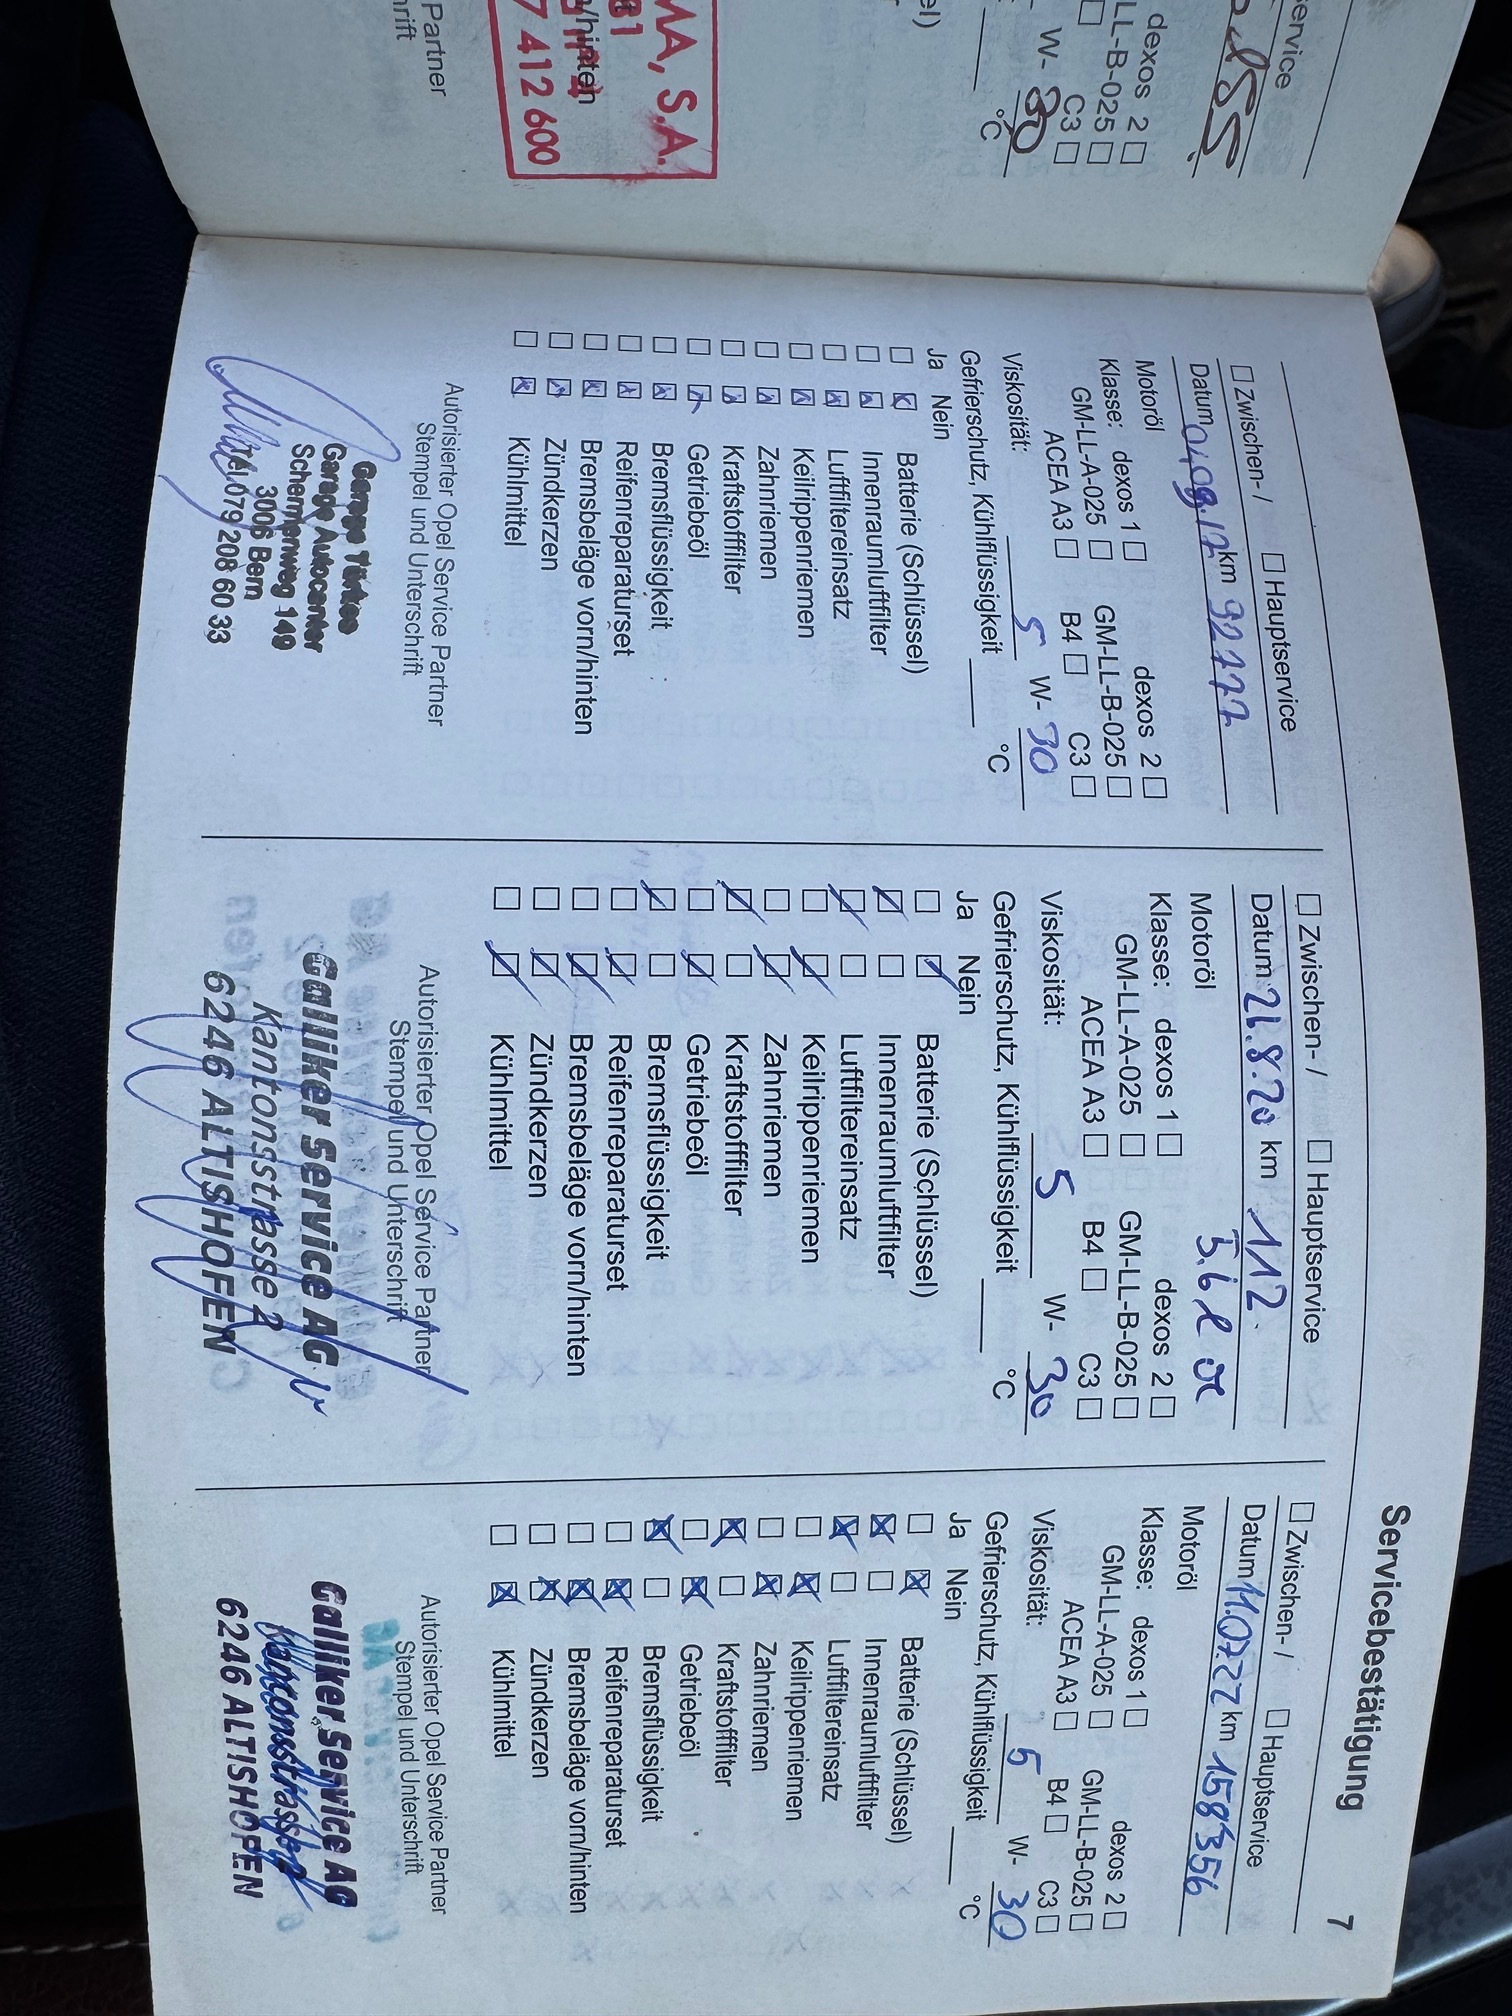 ervice
dexos 2
LL-B-025
C3
W- 30
°C
el)
MA, S.A.
/hinten
7 412 600
Partner
hrift
Servicebestätigung 7
Zwischen- / Hauptservice
Datum 04.09.17 km 92777
Motoröl
Klasse: dexos 1 dexos 2
GM-LL-A-025 GM-LL-B-025
ACEA A3 B4 C3
Viskosität: 5 W- 30
Gefrierschutz, Kühlflüssigkeit °C
Ja Nein
Batterie (Schlüssel)
Innenraumluftfilter
Luftfiltereinsatz
Keilrippenriemen
Zahnriemen
Kraftstofffilter
Getriebeöl
Bremsflüssigkeit
Reifenreparaturset
Bremsbeläge vorn/hinten
Zündkerzen
Kühlmittel
Autorisierter Opel Service Partner
Stempel und Unterschrift
Garage
Garage Autocenter
Schermenweg 149
3006 Bern
Tel 079 208 60 33
Zwischen- / Hauptservice
Datum 21.8.20 km 112.
Motoröl
Klasse: dexos 1 dexos 2
GM-LL-A-025 GM-LL-B-025
ACEA A3 B4 C3
Viskosität: 5 W- 30
Gefrierschutz, Kühlflüssigkeit °C
Ja Nein
Batterie (Schlüssel)
Innenraumluftfilter
Luftfiltereinsatz
Keilrippenriemen
Zahnriemen
Kraftstofffilter
Getriebeöl
Bremsflüssigkeit
Reifenreparaturset
Bremsbeläge vorn/hinten
Zündkerzen
Kühlmittel
Autorisierter Opel Service Partner
Stempel und Unterschrift
Galliker Service AG
Kantonsstrasse 2
6246 ALTISHOFEN
Zwischen- / Hauptservice
Datum 11.07.22 km 158356
Motoröl
Klasse: dexos 1 dexos 2
GM-LL-A-025 GM-LL-B-025
ACEA A3 B4 C3
Viskosität: 5 W- 30
Gefrierschutz, Kühlflüssigkeit °C
Ja Nein
Batterie (Schlüssel)
Innenraumluftfilter
Luftfiltereinsatz
Keilrippenriemen
Zahnriemen
Kraftstofffilter
Getriebeöl
Bremsflüssigkeit
Reifenreparaturset
Bremsbeläge vorn/hinten
Zündkerzen
Kühlmittel
Autorisierter Opel Service Partner
Stempel und Unterschrift
Galliker Service AG
Kantonsstrasse
6246 ALTISHOFEN